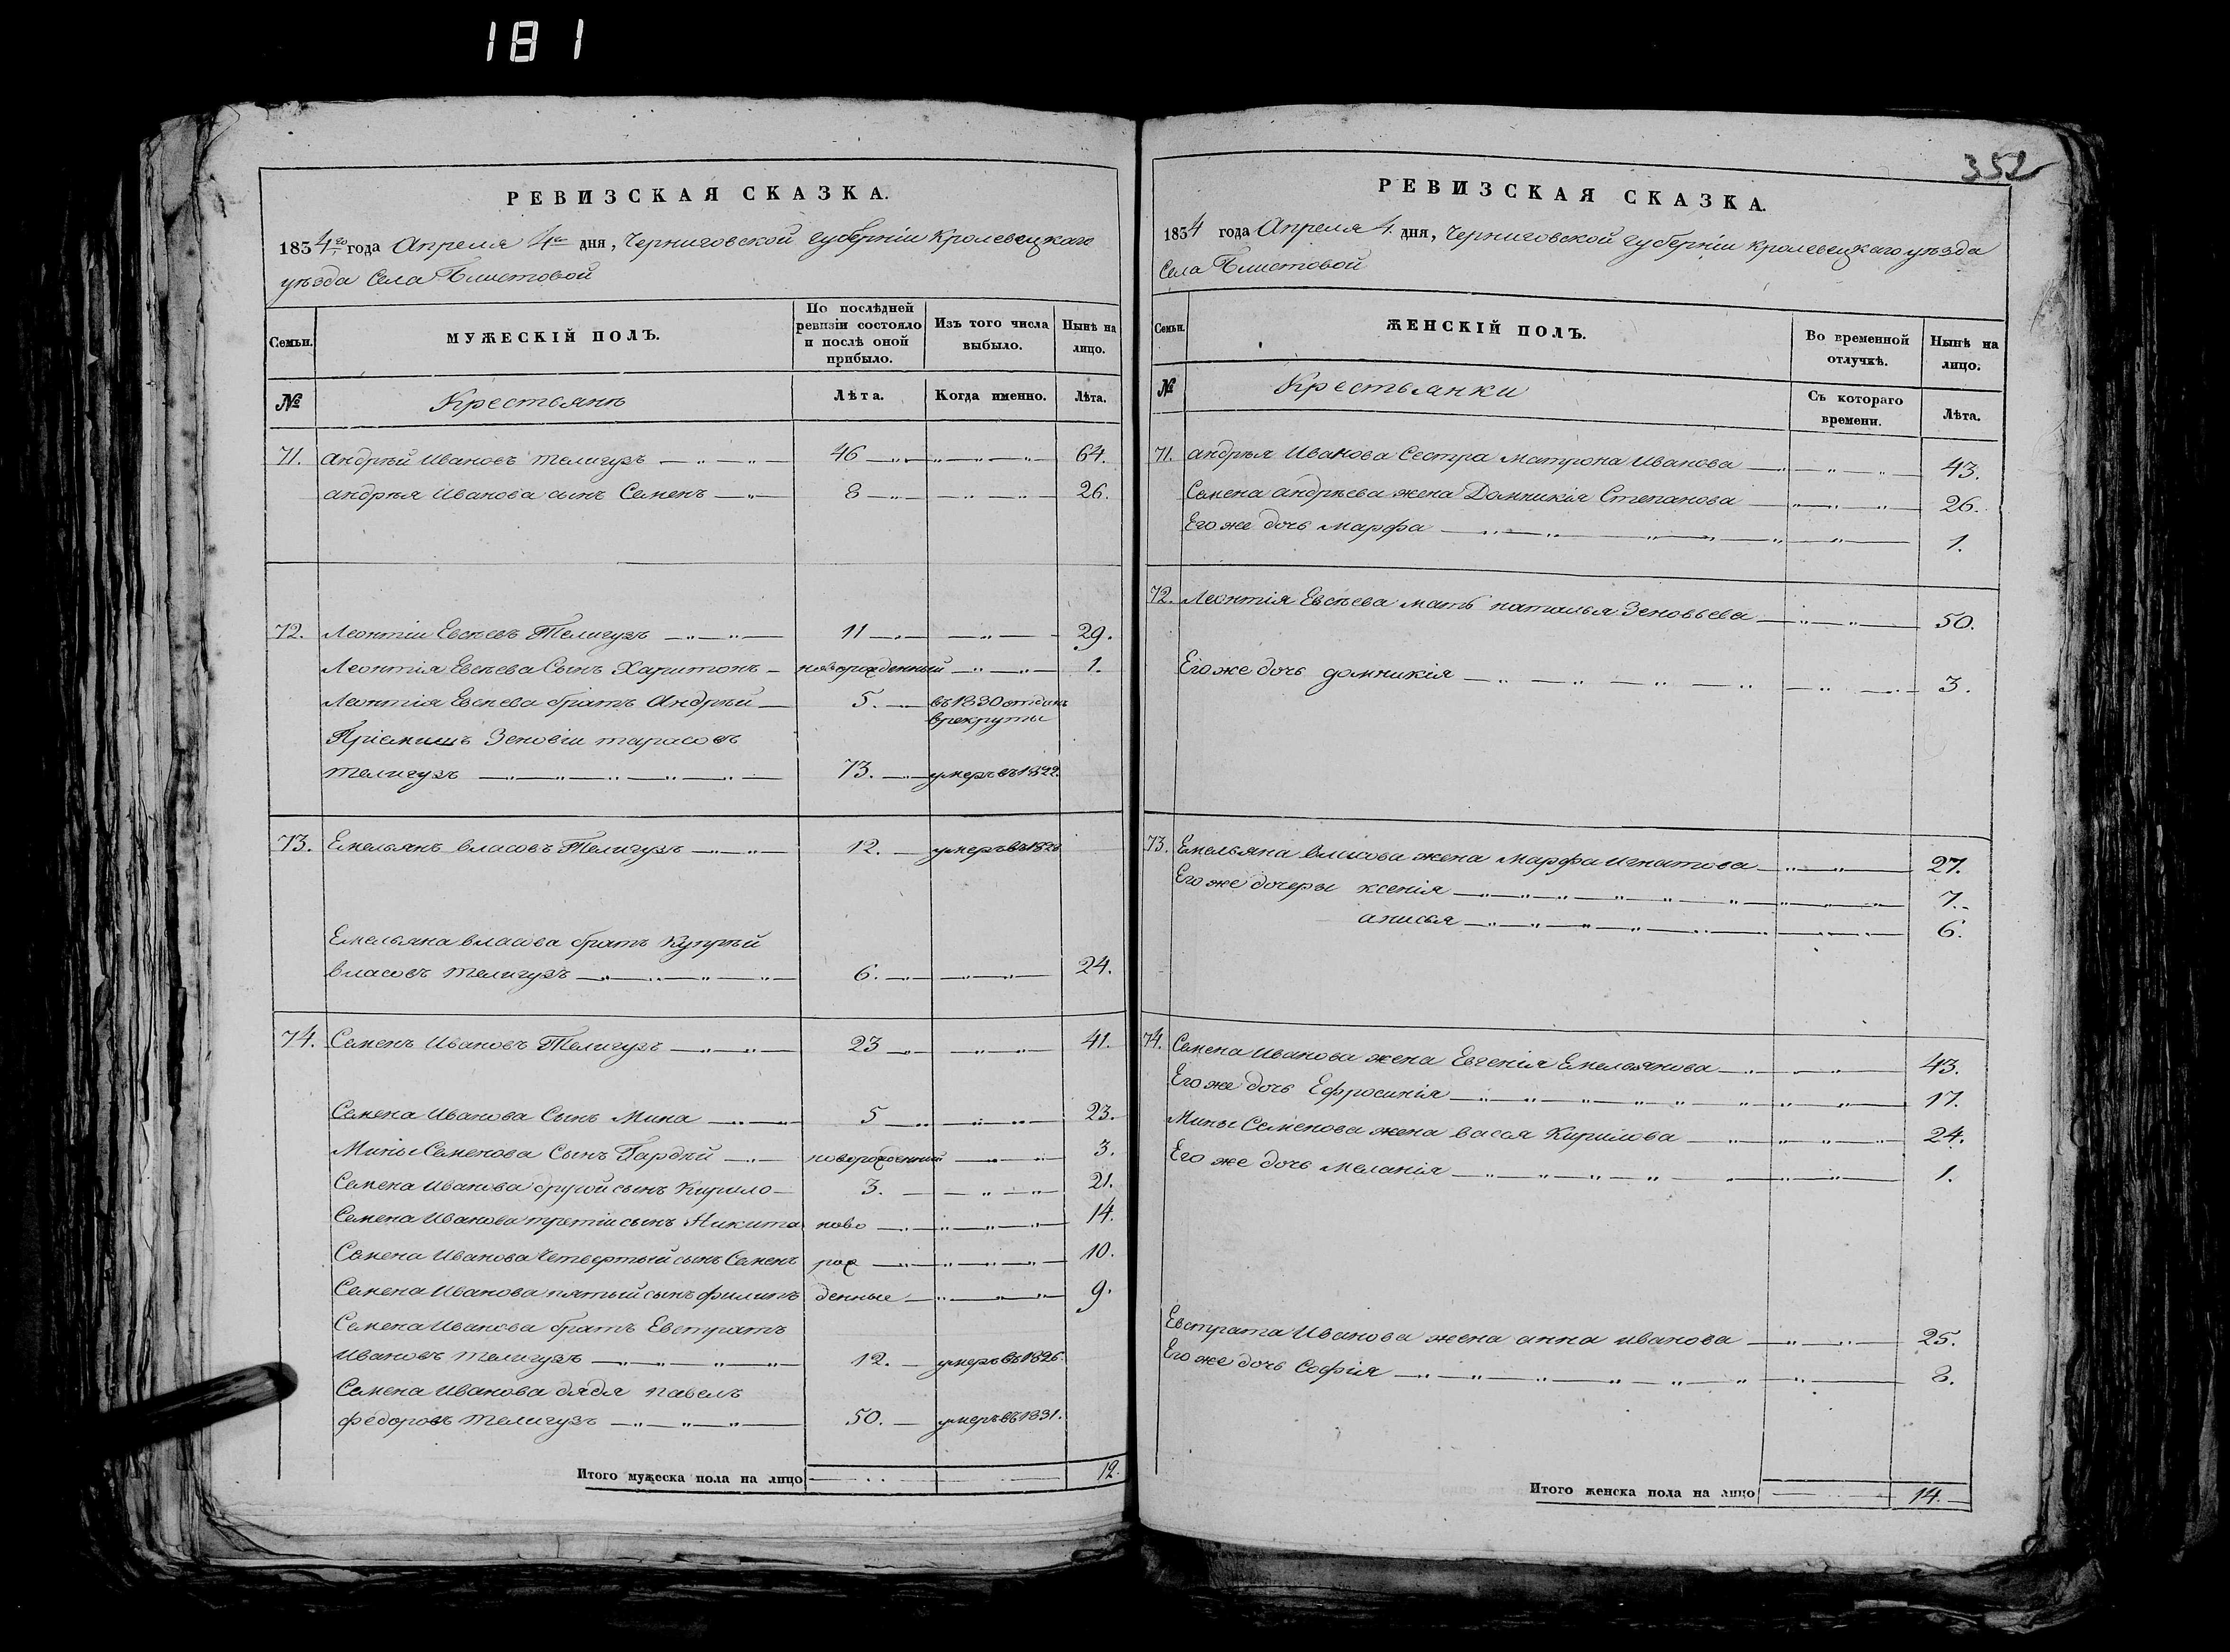 181
РЕВИЗСКАЯ СКАЗКА.
1834го года Апреля 4го дня, Черниговской губернiи Кролевецкаго
уѣзда Села Блистовой
Семьи.
МУЖЕСКIЙ ПОЛЪ.
По послѣдней ревизiи состояло и послѣ оной прибыло.
Изъ того числа выбыло.
Нынѣ на лицо.
№
Крестьянъ
Лѣта.
Когда именно.
Лѣта.
71. Андрѣй Ивановъ Телигузъ 46 64.
Андрѣя Иванова сынъ Семенъ 8 26.
72. Леонтiи Евсѣевъ Телигузъ 11 29.
Леонтiя Евсѣева Сынъ Харитонъ новорожденный 1.
Леонтiя Евсѣева братъ Андрѣй 5. въ 1830 отданъ
врекруты
Прiемышъ Зеновiи тарасовъ
телигузъ 73. умеръ въ 1822.
73. Емельянъ власовъ Телигузъ 12. умеръ въ
Емельяна власова братъ Купрѣй
власовъ телигузъ 6. 24.
74. Семенъ Ивановъ Телигузъ 23 41.
Семена Иванова Сынъ Мина 5 23.
Мины Семенова Сынъ Гардѣй новорожденный 3.
Семена Иванова другой сынъ Кирило 3. 21.
Семена Иванова третiи сынъ Никита ново 14.
Семена Иванова Четвертый сынъ Семенъ рож 10.
Семена Иванова пятый сынъ филипъ денные 9.
Семена Иванова братъ Евстратъ
Ивановъ телигузъ 12. умеръ въ 1826.
Семена Иванова дядя павелъ
федоровъ телигузъ 50. умеръ въ 1831.
Итого мужеска пола на лицо 12.
352
РЕВИЗСКАЯ СКАЗКА.
1834 года Апреля 4. дня, Черниговской губернiи кролевецкаго уѣзда
Села Блистовой
Семьи.
ЖЕНСКIЙ ПОЛЪ.
Во временной отлучкѣ.
Нынѣ на лицо.
№
Крестьянки
Съ котораго времени.
Лѣта.
71. андрѣя Иванова Сестра матрона Иванова 43.
Семена андрѣева жена Домникiя Степанова 26.
Его же дочь марфа 1.
72. Леонтiя Евсѣева мать наталья Зеновьева 50.
Его же дочь домникiя 3.
73. Емельяна власова жена марфа игнатова 27.
Его же дочеры ксенiя 7.
анисья 6.
74. Семена иванова жена Евгенiя Емельянова 43.
Его же дочь Ефросинiя 17.
Мины Семенова жена васся Кирилова 24.
Его же дочь меланiя 1.
Евстрата Иванова жена анна иванова 25.
Его же дочь Софiя 8.
Итого женска пола на лицо 14.